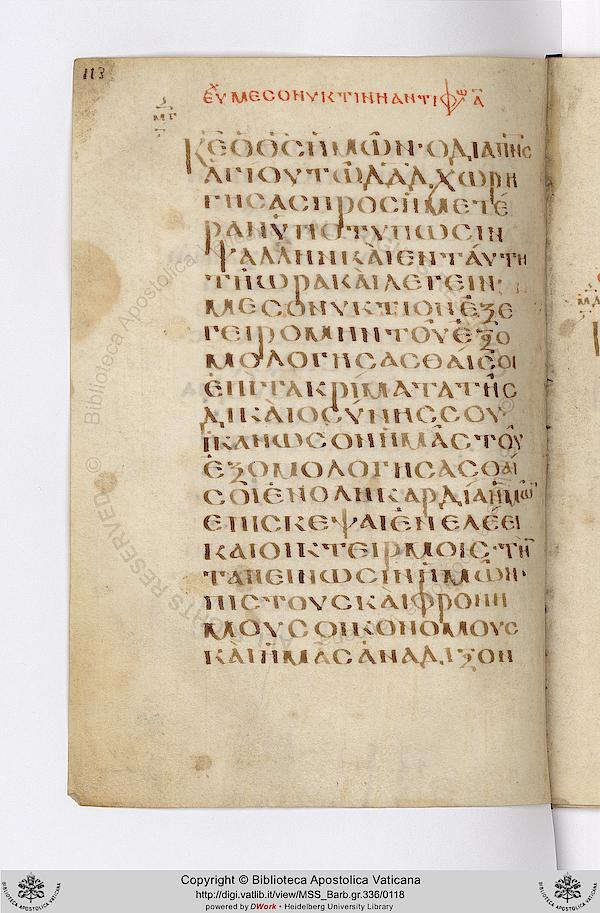 113
ΕΥΧ ΜΕΣΟΝΥΚΤΙΝΗ ΑΝΤΙΦΩ Α
ΜΓ
ΚΕ Ο ΘΣ ΗΜΩΝ · Ο ΔΙΑ ΠΝΣ
ΑΓΙΟΥ ΤΩ ΔΑΔ ΧΩΡΗ
ΓΗΣΑΣ ΠΡΟΣ ΗΜΕΤΕ
ΡΑΝ ΥΠΟΤΥΠΩΣΙΝ
ΨΑΛΛΗΝ ΚΑΙ ΕΝ ΤΑΥΤΗ
ΤΗ ΩΡΑ ΚΑΙ ΛΕΓΕΙΝ·
ΜΕΣΟΝΥΚΤΙΟΝ ΕΞΕ
ΓΕΙΡΟΜΗΝ ΤΟΥ ΕΞΟ
ΜΟΛΟΓΗΣΑΣΘΑΙ ΣΟΙ
ΕΠΙ ΤΑ ΚΡΙΜΑΤΑ ΤΗΣ
ΔΙΚΑΙΟΣΥΝΗΣ ΣΟΥ
ΙΚΑΝΩΣΟΝ ΗΜΑΣ ΤΟΥ
ΕΞΟΜΟΛΟΓΗΣΑΣΘΑΙ
ΣΟΙ ΕΝ ΟΛΗ ΚΑΡΔΙΑ ΗΜΩ
ΕΠΙΣΚΕΨΑΙ ΕΝ ΕΛΕΕΙ
ΚΑΙ ΟΙΚΤΕΙΡΜΟΙΣ · ΤΗ
ΤΑΠΕΙΝΩΣΙΝ ΗΜΩΝ·
ΠΙΣΤΟΥΣ ΚΑΙ ΦΡΟΝΗ
ΜΟΥΣ ΟΙΚΟΝΟΜΟΥΣ
ΚΑΙ ΗΜΑΣ ΑΝΑΔΙΞΟΝ
Biblioteca Apostolica Vaticana ©
RIGHTS RESERVED
Copyright © Biblioteca Apostolica Vaticana
http://digi.vatlib.it/view/MSS_Barb.gr.336/0118
powered by DWork - Heidelberg University Library